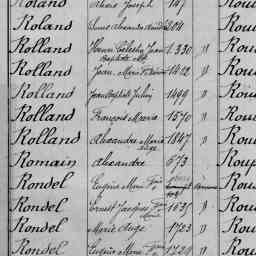 Roland Alexis Joseph 147 Rou
Roland Louis Alexandre 204 Rou
Rolland Henri Celestin Jean 1,330 " Rou
Baptiste
Rolland Jean Marie 1412 " Rou
Rolland Jean Baptiste Julien 1499 " Rou
Rolland François Marie 1570 " Rou
Rolland Alexandre Marie 1847 " Rou
Romain Alexandre 673 Roup
Rondel Eugène Marie Rous
Rondel Ernest Jacques 1035 " Rou
Rondel Marie Ange 1703 " Rou
Rondel Eugène Marie 1724 " Rou